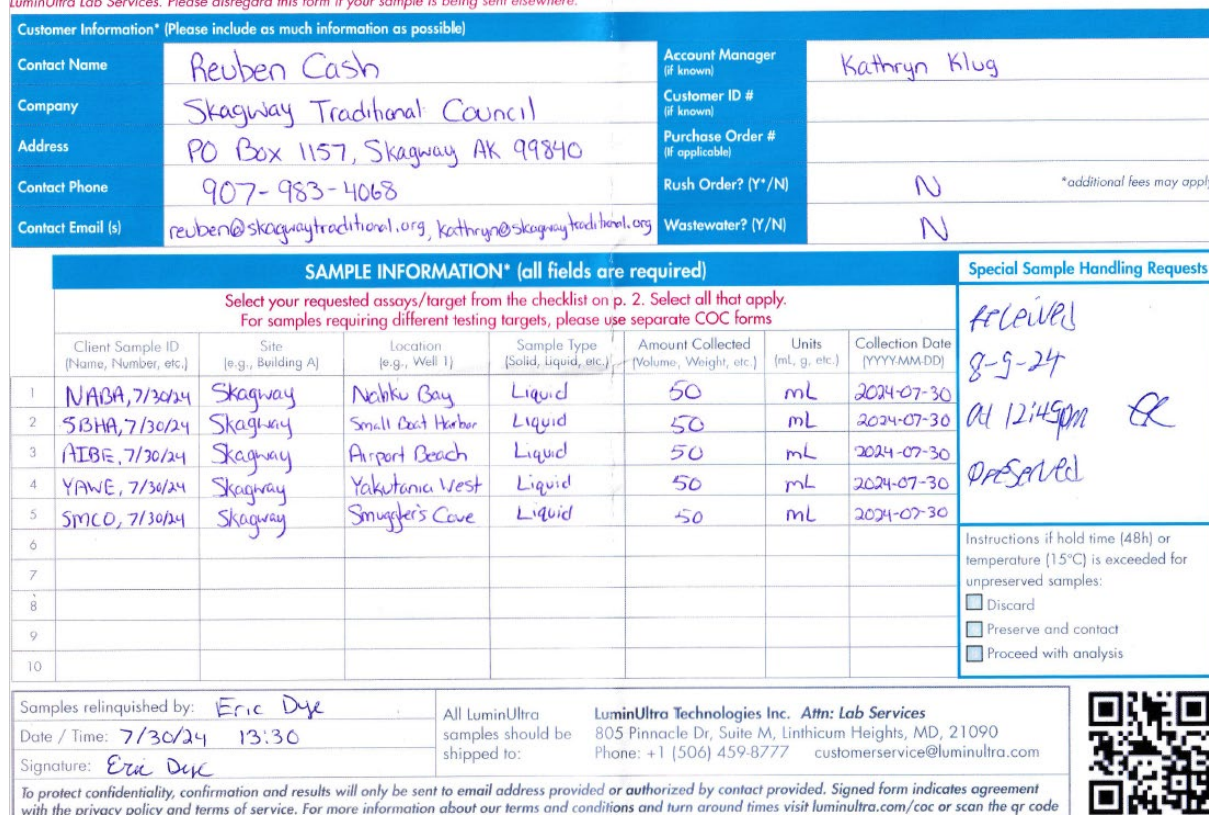 LuminUltra Lab Services. Please disregard this form if your sample is being sent elsewhere.
Customer Information* (Please include as much information as possible)
Contact Name Reuben Cash Account Manager (if known) Kathryn Klug
Company Skagway Traditional Council Customer ID # (if known)
Address PO Box 1157, Skagway AK 99840 Purchase Order # (If applicable)
Contact Phone 907-983-4068 Rush Order? (Y*/N) N *additional fees may apply
Contact Email (s) reuben@skagwaytraditional.org, kathryn@skagwaytraditional.org Wastewater? (Y/N) N
SAMPLE INFORMATION* (all fields are required)
Select your requested assays/target from the checklist on p. 2. Select all that apply.
For samples requiring different testing targets, please use separate COC forms
Client Sample ID (Name, Number, etc.) Site (e.g., Building A) Location (e.g., Well 1) Sample Type (Solid, Liquid, etc.) Amount Collected (Volume, Weight, etc.) Units (mL, g, etc.) Collection Date (YYYY-MM-DD)
1 NABA, 7/30/24 Skagway Nahku Bay Liquid 50 mL 2024-07-30
2 SBHA, 7/30/24 Skagway Small Boat Harbor Liquid 50 mL 2024-07-30
3 AIBE, 7/30/24 Skagway Airport Beach Liquid 50 mL 2024-07-30
4 YAWE, 7/30/24 Skagway Yakutania West Liquid 50 mL 2024-07-30
5 SMCO, 7/30/24 Skagway Smuggler's Cove Liquid 50 mL 2024-07-30
6
7
8
9
10
Special Sample Handling Requests
received
8-9-24
at 12:45pm
preserved
Instructions if hold time (48h) or
temperature (15°C) is exceeded for
unpreserved samples:
Discard
Preserve and contact
Proceed with analysis
Samples relinquished by: Eric Dye
Date / Time: 7/30/24 13:30
Signature: Eric Dye
All LuminUltra
samples should be
shipped to:
LuminUltra Technologies Inc. Attn: Lab Services
805 Pinnacle Dr, Suite M, Linthicum Heights, MD, 21090
Phone: +1 (506) 459-8777 customerservice@luminultra.com
To protect confidentiality, confirmation and results will only be sent to email address provided or authorized by contact provided. Signed form indicates agreement
with the privacy policy and terms of service. For more information about our terms and conditions and turn around times visit luminultra.com/coc or scan the qr code